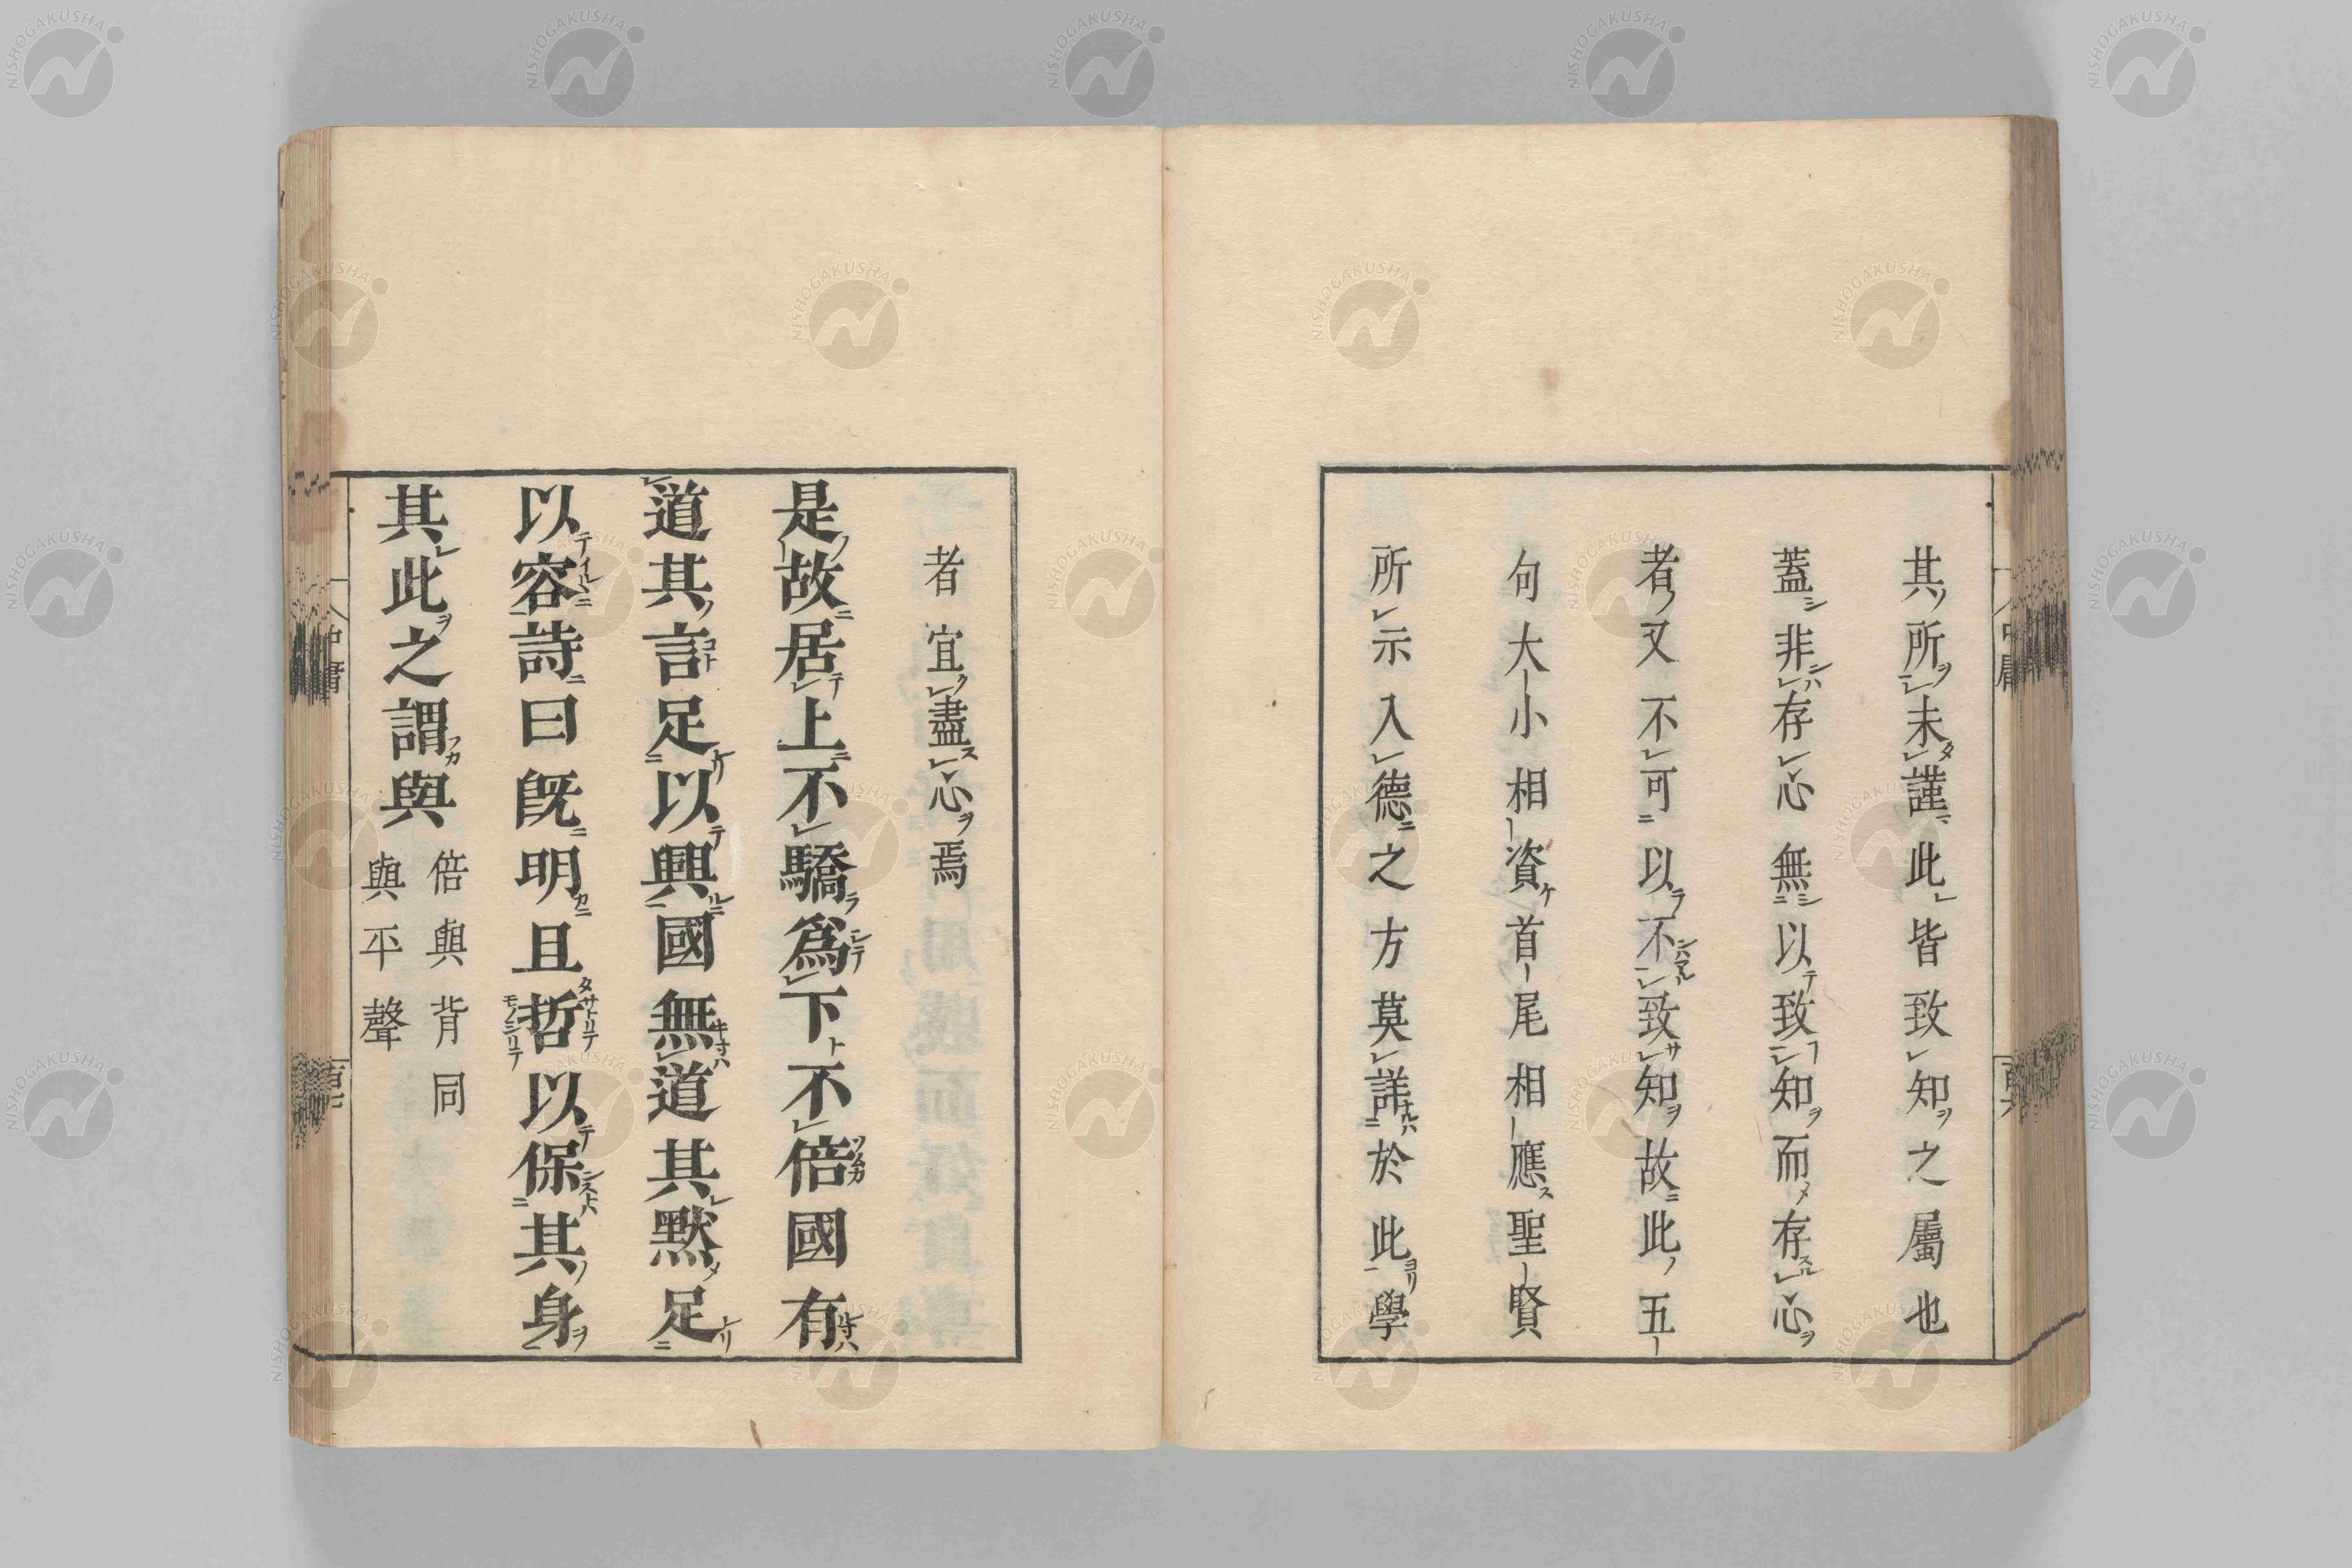 其所未謹此皆致知之屬也
蓋非存心無以致知而存心
者又不可以不致知故此五
句大小相資首尾相應聖賢
所示入德之方莫詳於此學
者宜盡心焉
是故居上不驕爲下不倍國有
道其言足以興國無道其默足
以容詩曰既明且哲以保其身
其此之謂與
倍與背同
與平聲
中庸